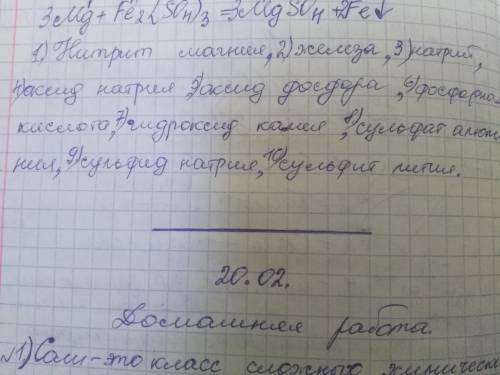 3Mg + Fe2(SO4)3 = 3MgSO4 + 2Fe↓
1) Нитрит магния, 2) железа, 3) натрий,
4) оксид натрия, 5) оксид фосфора, 6) фосфорная
кислота, 7) гидроксид калия, 8) сульфат алюми
ния, 9) сульфид натрия, 10) сульфит лития.
20.02.
Домашняя работа.
№1) Соли-это класс сложного химическо